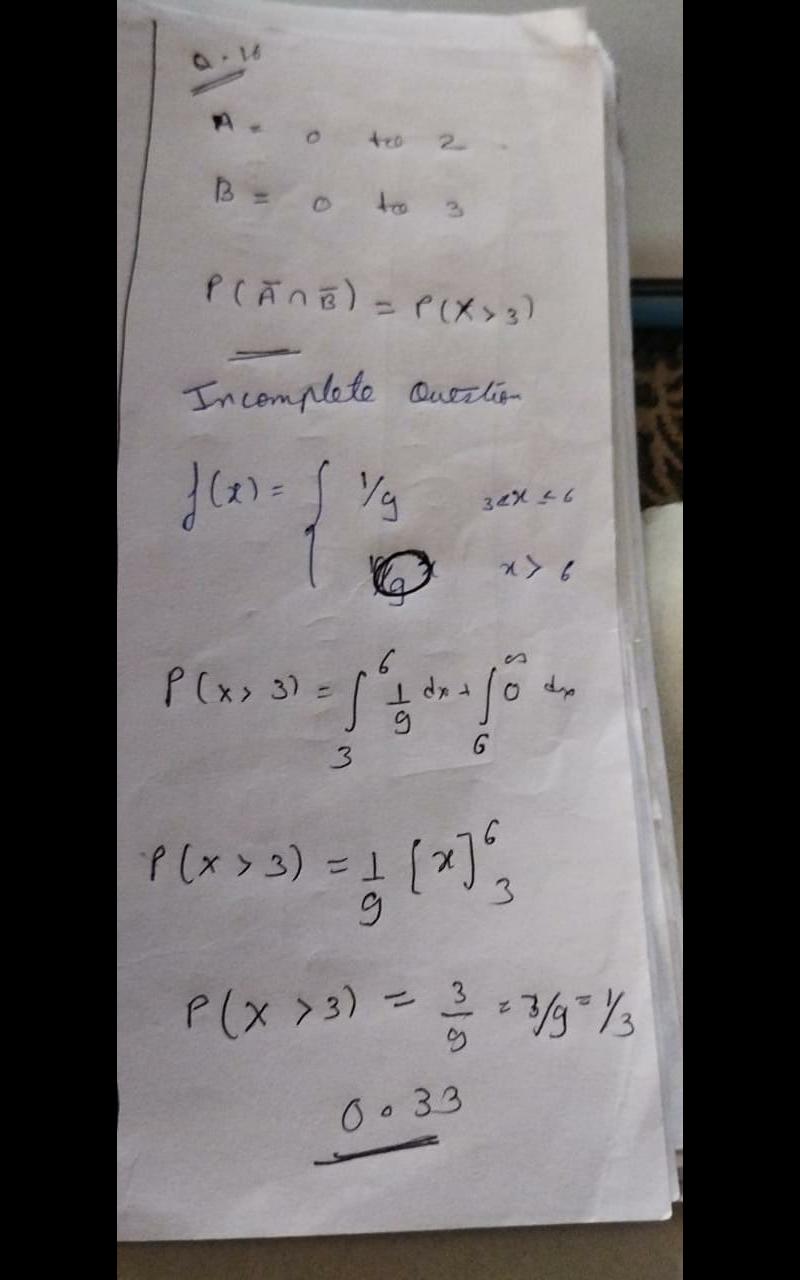 Q.16
A = 0 to 2
B = 0 to 3
P(A̅ ∩ B̅) = P(X > 3)
Incomplete Question
f(x) = { 1/9 3<x≤6
x > 6
P(x > 3) = ∫₃⁶ 1/9 dx + ∫₆^∞ 0 dx
P(x > 3) = 1/9 [x]₃⁶
P(x > 3) = 3/9 = 3/9 = 1/3
0.33